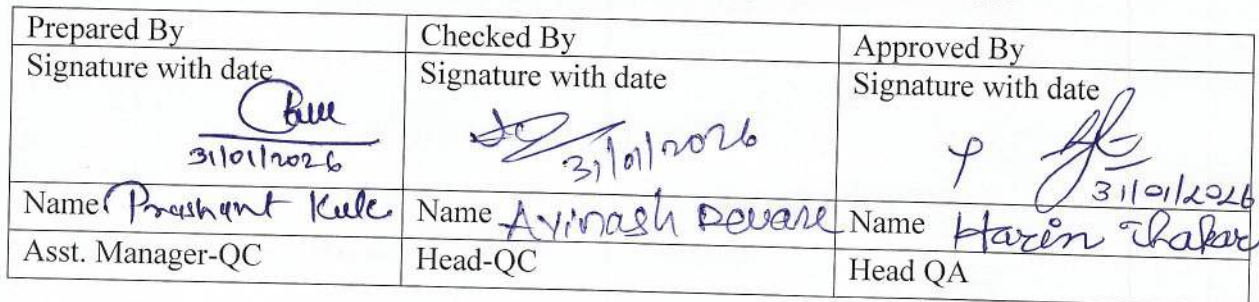 Prepared By Checked By Approved By
Signature with date Signature with date Signature with date
31/01/2026 31/01/2026 31/01/2026
Name Prashant Kule Name Avinash Deware Name Harin Thakar
Asst. Manager-QC Head-QC Head QA